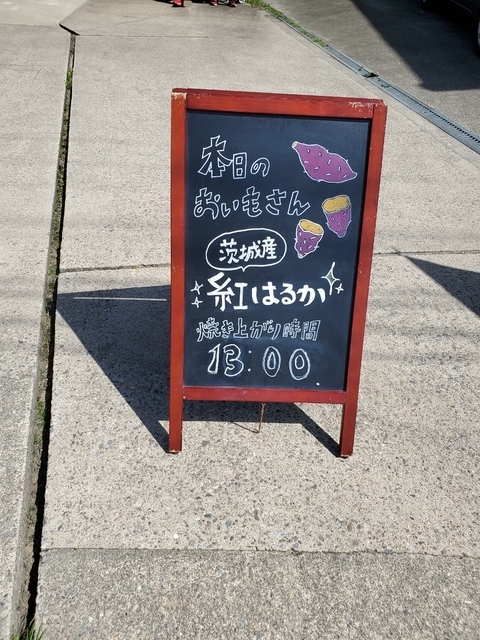 本日の
おいもさん
茨城産
紅はるか
焼き上がり時間
13:00